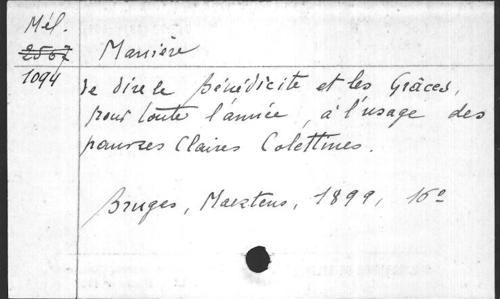 Mél.
2567
1094
Manière
de dire le Bénédicite et les Grâces,
pour toute l'année, à l'usage des
pauvres Claires Colettines.
Bruges, Maertens, 1899, 16º